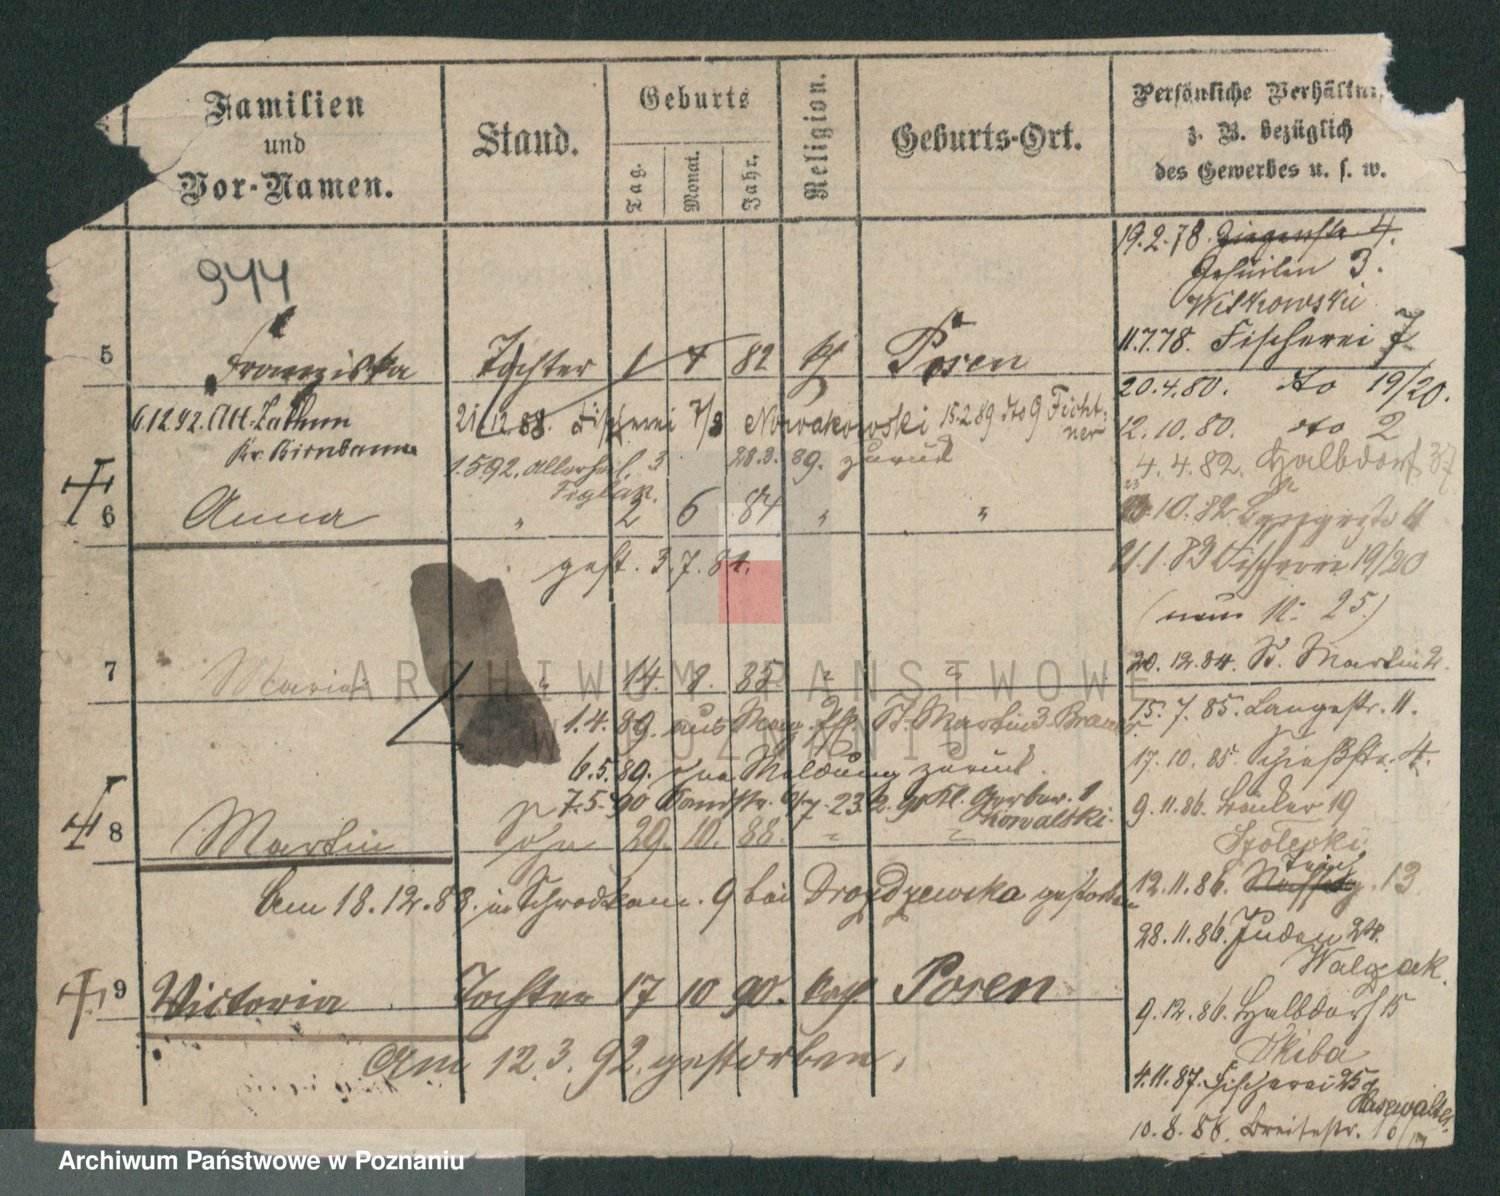 Familien
und
Vor-Namen.
Stand.
Geburts
Tag.
Monat.
Jahr.
Religion.
Geburts-Ort.
Persönliche
z. B. bezüglich
des Gewerbes u. s. w.
944
5 Franziska Tochter 1 4 82 Posen
6.12.92. Att.
Kr. Birnbaum
21.12.88. Fischerei 7/8 Nowakowski 15.2.89 dto 9 Fichtner
1.5.92. Allerheil. 3
28.3.89. zurück
6 Anna " 2 6 84 " "
gest. 3.7.84.
7 Maria " 14. 8. 85. " "
1.4.89. aus St. Martin 3
6.5.89. Meldung zurück.
7.5.90 23.2.90 Kl. Gerber. 1
Kowalski.
8 Martin Sohn 29. 10. 88. " "
Am 18.12.88. in 9 bei Drozdzewska gestorben
9 Victoria Tochter 17 10 90. Kath Posen
Am 12.3.92. gestorben.
19.2.78. 4.
3.
Witkowski
11.7.78. Fischerei 7
20.4.80. dto 19/20.
12.10.80. dto 2
4.4.82. Halbdorf 37
23
10.82
21.1.83 Fischerei 19/20
(nun N: 25)
20.12.84. St. Martin 2.
15.7.85. Langestr. 11.
17.10.85. Schießstr. 4.
9.11.86. 19
12.11.86. 13
28.11.86. Juden 24.
Walczak.
9.12.86. Halbdorf 15
Skiba
4.11.87. Fischerei 25
10.8.88. Breitestr.
ARCHIWUM PAŃSTWOWE
W POZNANIU
Archiwum Państwowe w Poznaniu